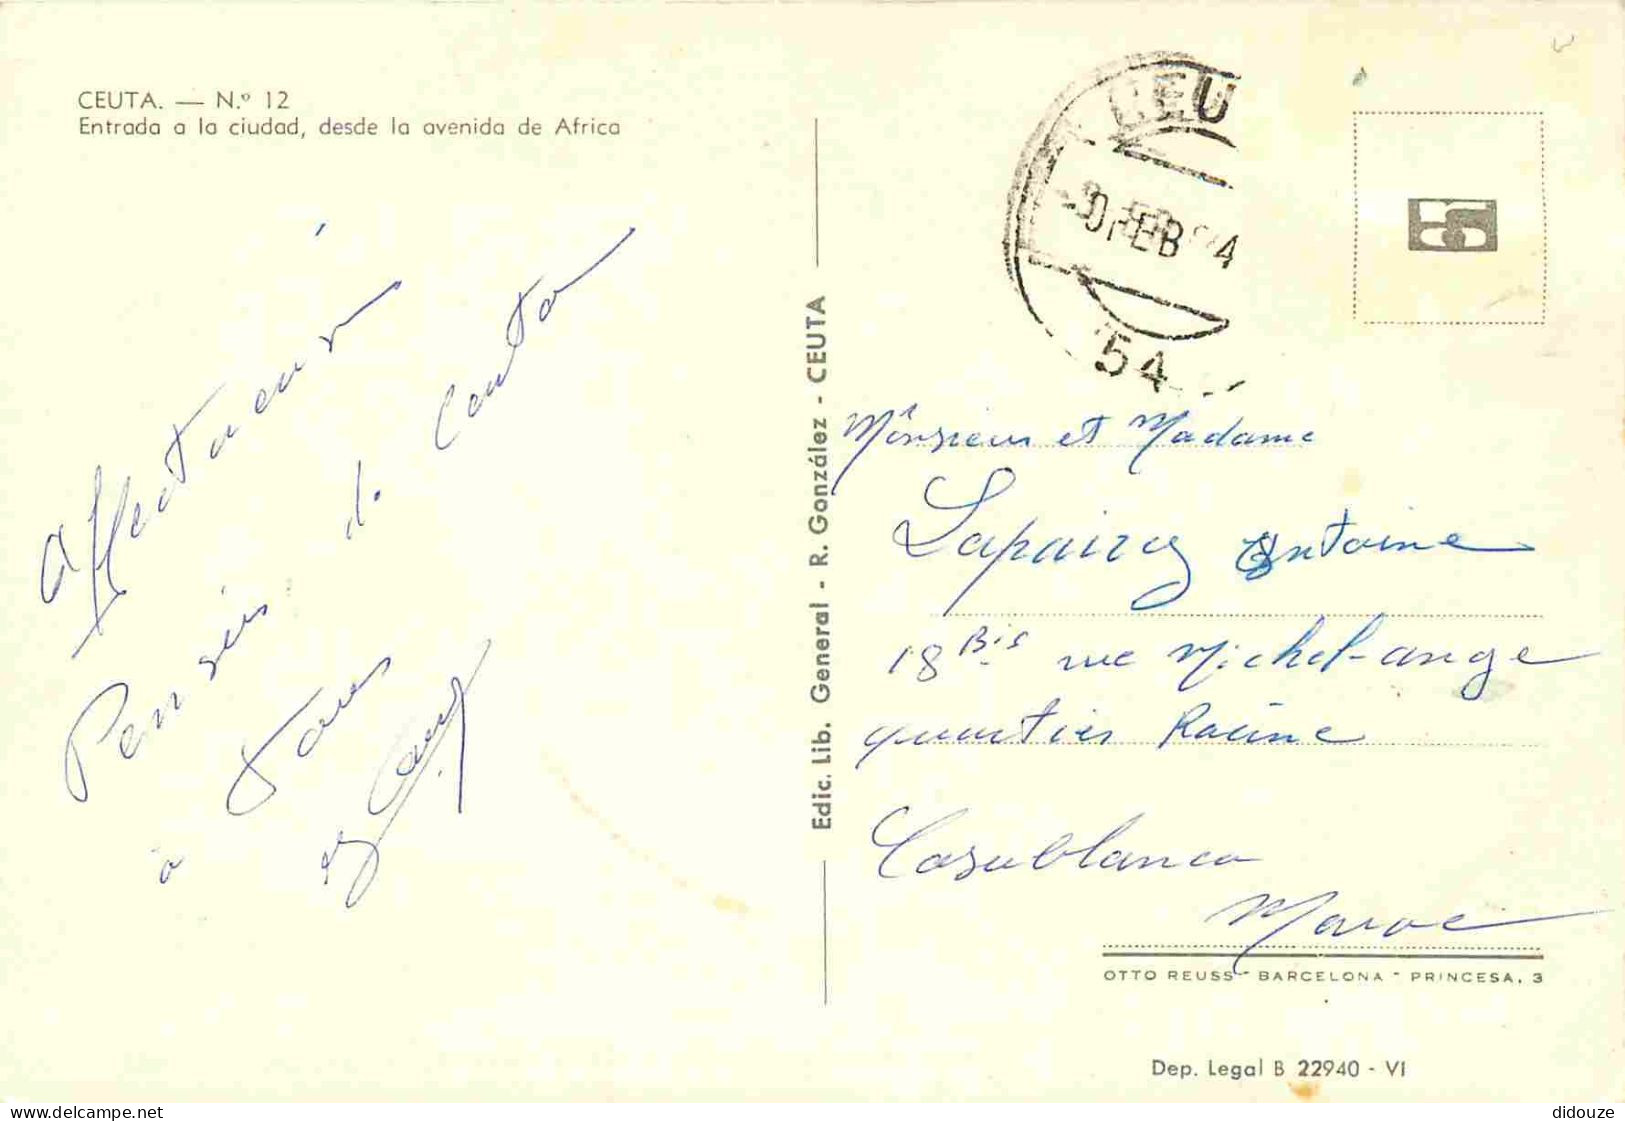 CEUTA. — N.º 12
Entrada a la ciudad, desde la avenida de Africa
Affectueux
Pensées de Ceuta
à tous
Edic. Lib. General - R. González - CEUTA
CEU
FEB
54
Monsieur et Madame
Lapairey Antoine
18 Bis rue Michel-ange
quartier Racine
Casablanca
Maroc
OTTO REUSS - BARCELONA - PRINCESA, 3
Dep. Legal B 22940 - VI
delcampe.net
didouze